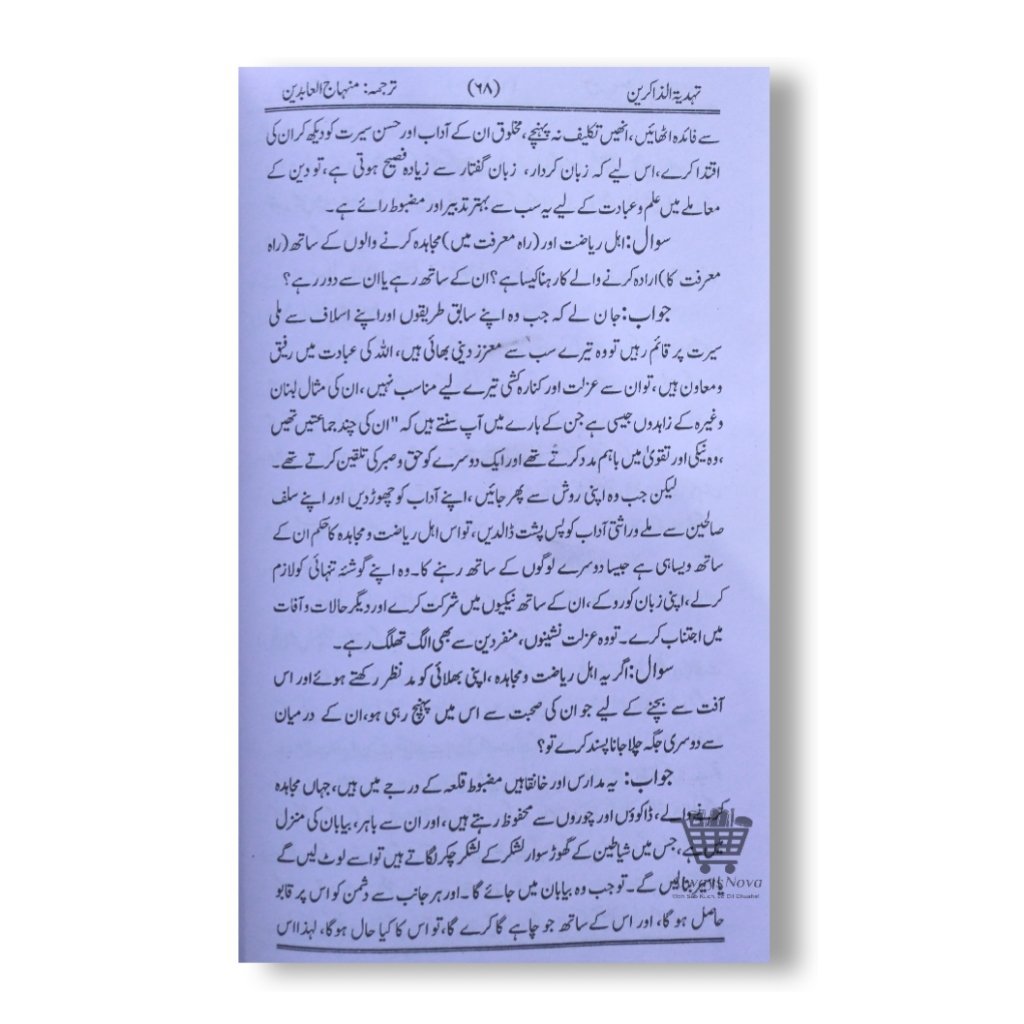 تہدیۃ الذاکرین (۶۸) ترجمہ: منہاج العابدین
سے فائدہ اٹھائیں، انھیں تکلیف نہ پہنچے، مخلوق ان کے آداب اور حسن سیرت کو دیکھ کر ان کی
اقتدا کرے، اس لیے کہ زبان کردار، زبان گفتار سے زیادہ فصیح ہوتی ہے، تو دین کے
معاملے میں علم و عبادت کے لیے یہ سب سے بہتر تدبیر اور مضبوط رائے ہے۔
سوال: اہل ریاضت اور (راہ معرفت میں) مجاہدہ کرنے والوں کے ساتھ (راہ
معرفت کا) ارادہ کرنے والے کا رہنا کیسا ہے؟ ان کے ساتھ رہے یا ان سے دور رہے؟
جواب: جان لے کہ جب وہ اپنے سابق طریقوں اور اپنے اسلاف سے ملی
سیرت پر قائم رہیں تو وہ تیرے سب سے معزز دینی بھائی ہیں، اللہ کی عبادت میں رفیق
و معاون ہیں، تو ان سے عزلت اور کنارہ کشی تیرے لیے مناسب نہیں، ان کی مثال لبنان
وغیرہ کے زاہدوں جیسی ہے جن کے بارے میں آپ سنتے ہیں کہ "ان کی چند جماعتیں تھیں
،وہ نیکی اور تقویٰ میں باہم مدد کرتے تھے اور ایک دوسرے کو حق و صبر کی تلقین کرتے تھے۔
لیکن جب وہ اپنی روش سے پھر جائیں، اپنے آداب کو چھوڑ دیں اور اپنے سلف
صالحین سے ملے وراثتی آداب کو پس پشت ڈالدیں، تو اس اہل ریاضت و مجاہدہ کا حکم ان کے
ساتھ ویسا ہی ہے جیسا دوسرے لوگوں کے ساتھ رہنے کا۔ وہ اپنے گوشئہ تنہائی کو لازم
کرلے، اپنی زبان کو روکے، ان کے ساتھ نیکیوں میں شرکت کرے اور دیگر حالات و آفات
میں اجتناب کرے۔ تو وہ عزلت نشینوں، منفردین سے بھی الگ تھلگ رہے۔
سوال: اگر یہ اہل ریاضت و مجاہدہ، اپنی بھلائی کو مد نظر رکھتے ہوئے اور اس
آفت سے بچنے کے لیے جو ان کی صحبت سے اس میں پہنچ رہی ہو، ان کے درمیان
سے دوسری جگہ چلا جانا پسند کرے تو؟
جواب: یہ مدارس اور خانقاہیں مضبوط قلعہ کے درجے میں ہیں، جہاں مجاہدہ
کرنے والے، ڈاکوؤں اور چوروں سے محفوظ رہتے ہیں، اور ان سے باہر، بیابان کی منزل
میں ہے، جس میں شیاطین کے گھوڑ سوار لشکر کے لشکر چکر لگاتے ہیں تو اسے لوٹ لیں گے
یا اسیر بنا لیں گے۔ تو جب وہ بیابان میں جائے گا۔ اور ہر جانب سے دشمن کو اس پر قابو
حاصل ہو گا، اور اس کے ساتھ جو چاہے گا کرے گا، تو اس کا کیا حال ہوگا، لہذا اس
Nova